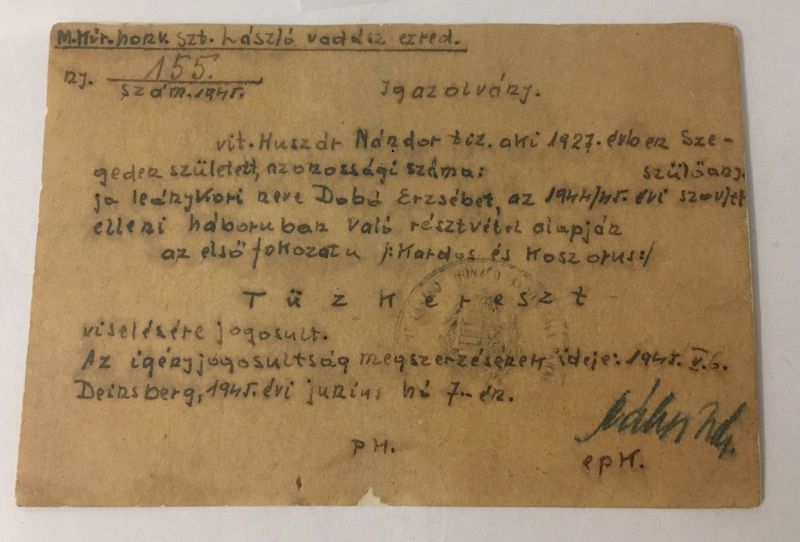 M.Kir.honv. Szt. László vadász ezred.
ny. 155.
szám.1945.
Igazolvány.
vit. Huszár Nándor tiz. aki 1927. évben Sze-
geden született, azonossági száma: szülőany-
ja leánykori neve Dobó Erzsébet, az 1944/45. évi szovjet
elleni háboruban való résztvétel alapján
az első fokozatu /:Kardos és Koszorus:/
Tűzkereszt
viselésére jogosult.
Az igényjogosultság megszerzésének ideje: 1945. V. 6.
Deinsberg, 1945. évi junius hó 7-én.
PH.
epk.